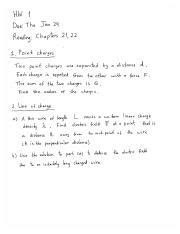 HW 1
Due Thu Jan 24
Reading Chapters 21, 22
1. Point charges
Two point charges are separated by a distance d.
Each charge is repelled from the other with a force F.
The sum of the two charges is Q.
Find the values of the charges.
2. Line of charge
a) A thin wire of length L carries a uniform linear charge
density λ. Find electric field E at a point that is
a distance R away from the mid-point of the wire
(R is the perpendicular distance).
b) Use the solution to part (a) to deduce the electric field
due to an infinitely long charged wire.